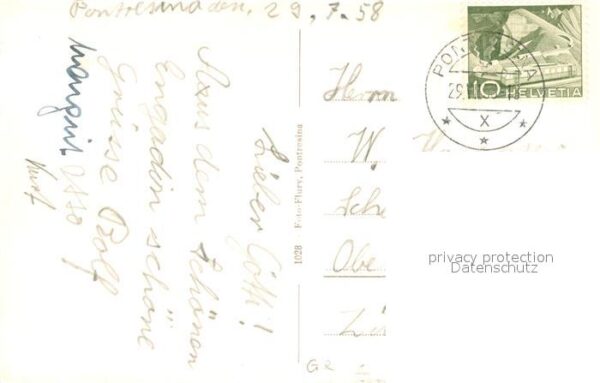 Pontresina den, 29.7.58
Lieber Götti!
Aus dem schönen
Engadin schöne
Grüsse Rolf
Margrit
Kurt
1028 - Foto-Flury, Pontresina
Herrn
W.
Obe
PONTRESINA
29. VII.
X
10 HELVETIA
privacy protection
Datenschutz
GR